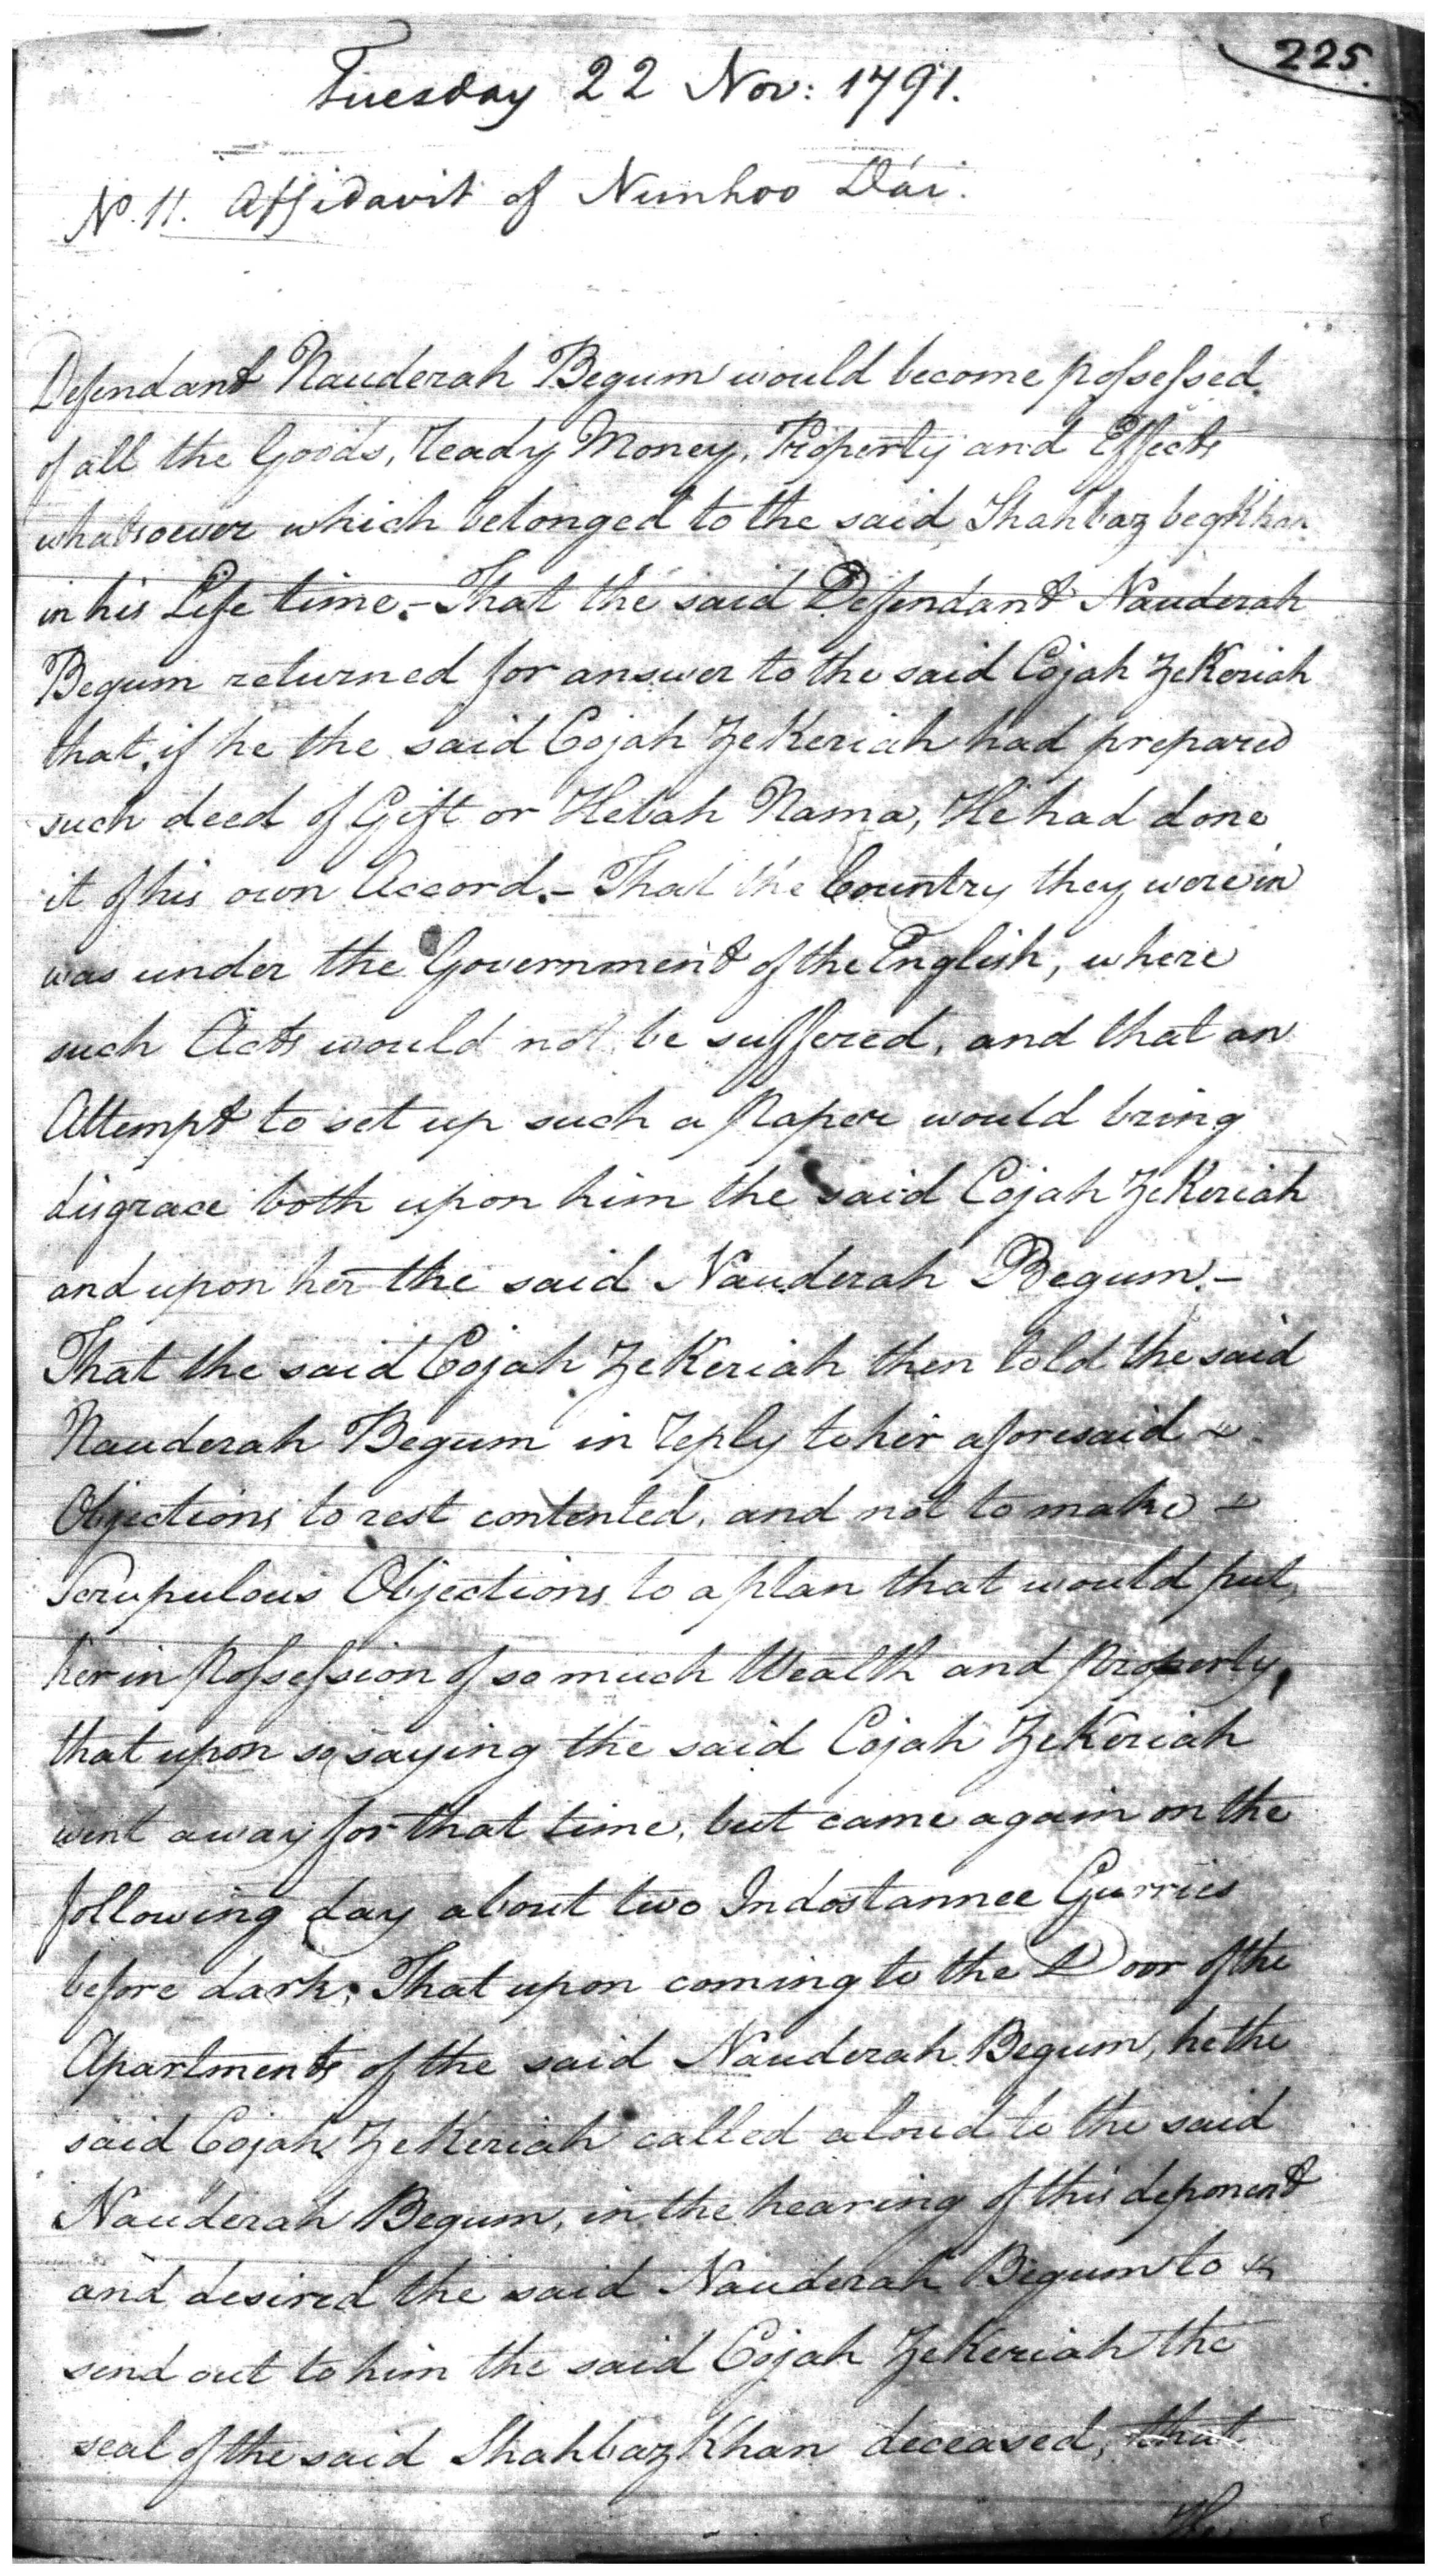 225.
Tuesday 22 Nov: 1791.
No. 11. Affidavit of Nunhoo Dái.
Defendant Nauderah Begum would become possessed
of all the Goods, ready Money, Property and Effects
whatsoever which belonged to the said Shahbaz beg Khan
in his Life time. – That the said Defendant Nauderah
Begum returned for answer to the said Cojah ZeKeriah
that, if he the said Cojah ZeKeriah had prepared
such deed of Gift or Hebah Nama, He had done
it of his own Accord. – That the Country they were in
was under the Government of the English, where
such Acts would not be suffered, and that an
Attempt to set up such a Paper would bring
disgrace both upon him the said Cojah ZeKeriah
and upon her the said Nauderah Begum. –
That the said Cojah ZeKeriah then told the said
Nauderah Begum in reply to her aforesaid
Objections to rest contented, and not to make
Scrupulous Objections to a plan that would put
her in Possession of so much Wealth and Property,
that upon so saying the said Cojah ZeKeriah
went away for that time, but came again on the
following day about two Indostannee Gurries
before dark; That upon coming to the Door of the
Apartments of the said Nauderah Begum, he the
said Cojah ZeKeriah called aloud to the said
Nauderah Begum, in the hearing of this deponent
and desired the said Nauderah Begum to
send out to him the said Cojah ZeKeriah the
seal of the said Shahbaz Khan deceased, that
The